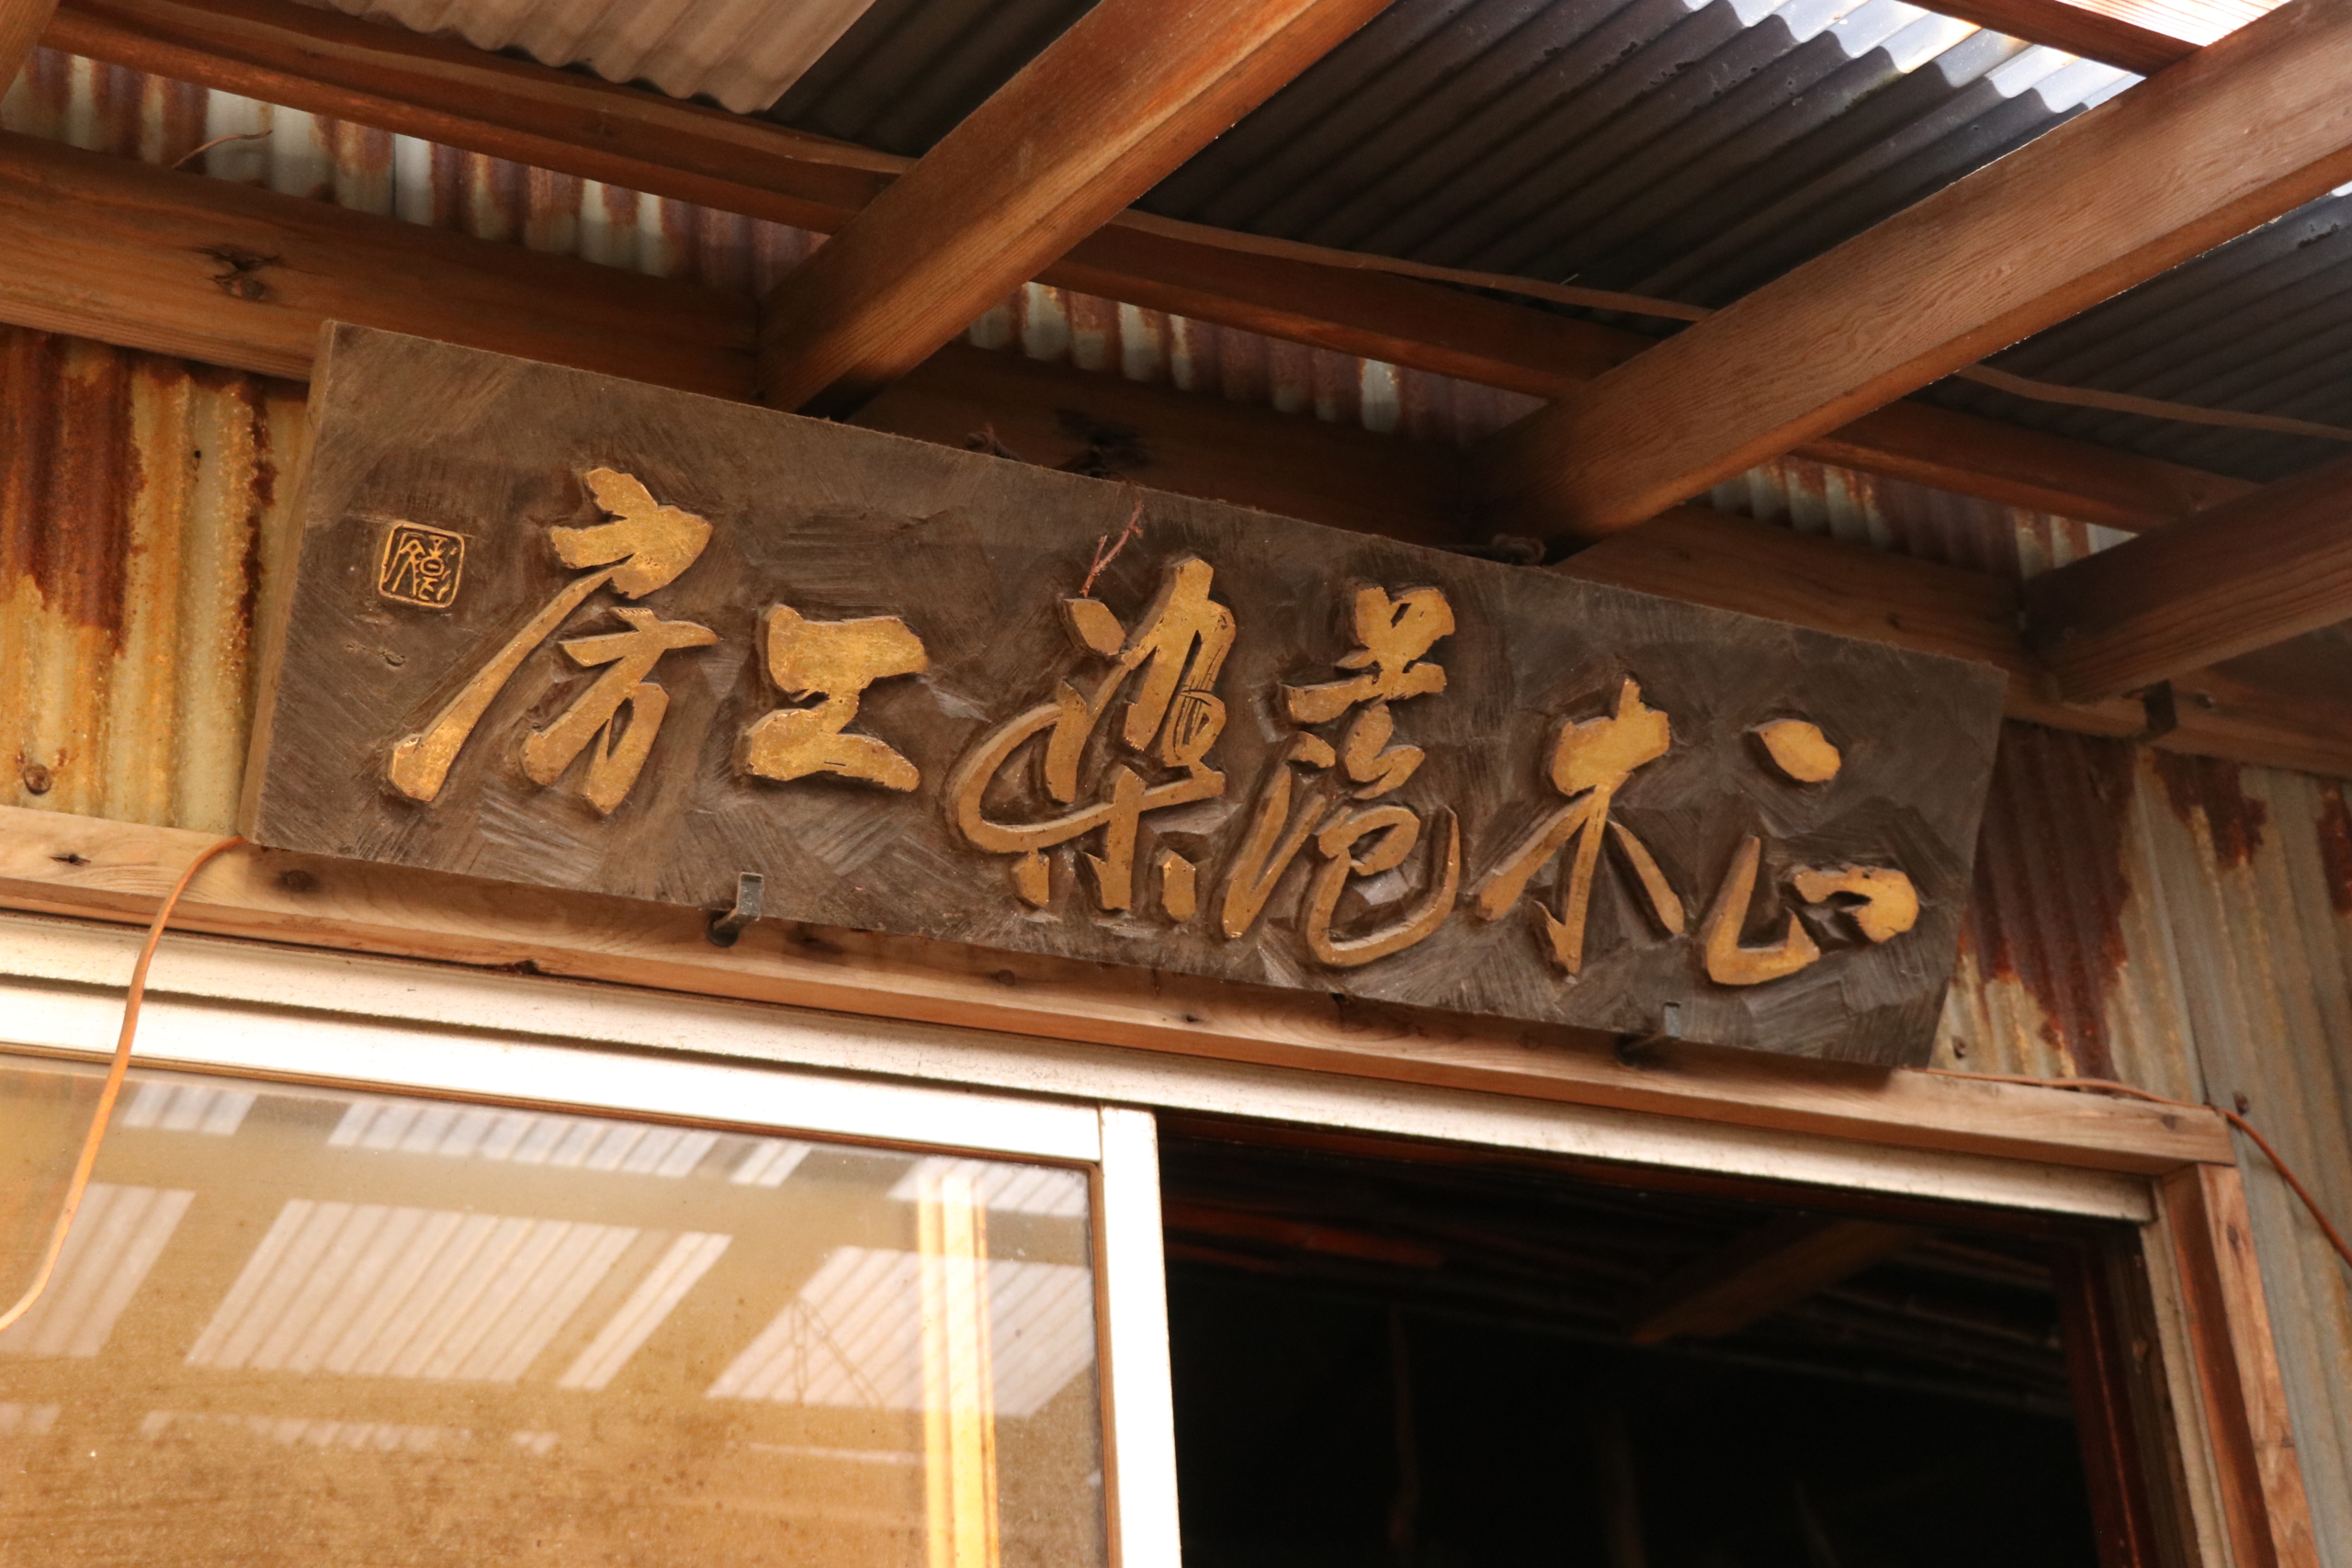 木藍染工房